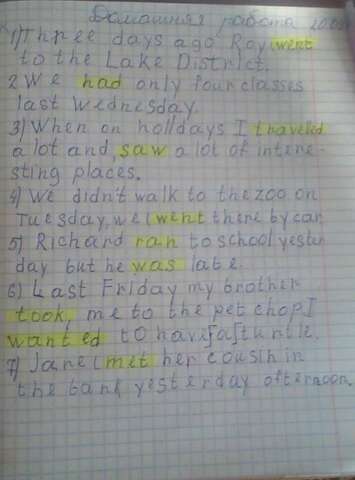 Домашняя работа
1) Three days ago Ray went
to the Lake District.
2 We had only four classes
last Wednesday.
3) When on holldays I traveled
a lot and, saw a lot of intere-
sting places.
4) We didn't walk to the zoo on
Tuesday, we went there by car
5) Richard ran to school yester
day but he was late.
6) Last Friday my brother
took, me to the pet chop I
wanted to have a turtle.
7) Jane met her cousin in
the bank yesterday afternoon.